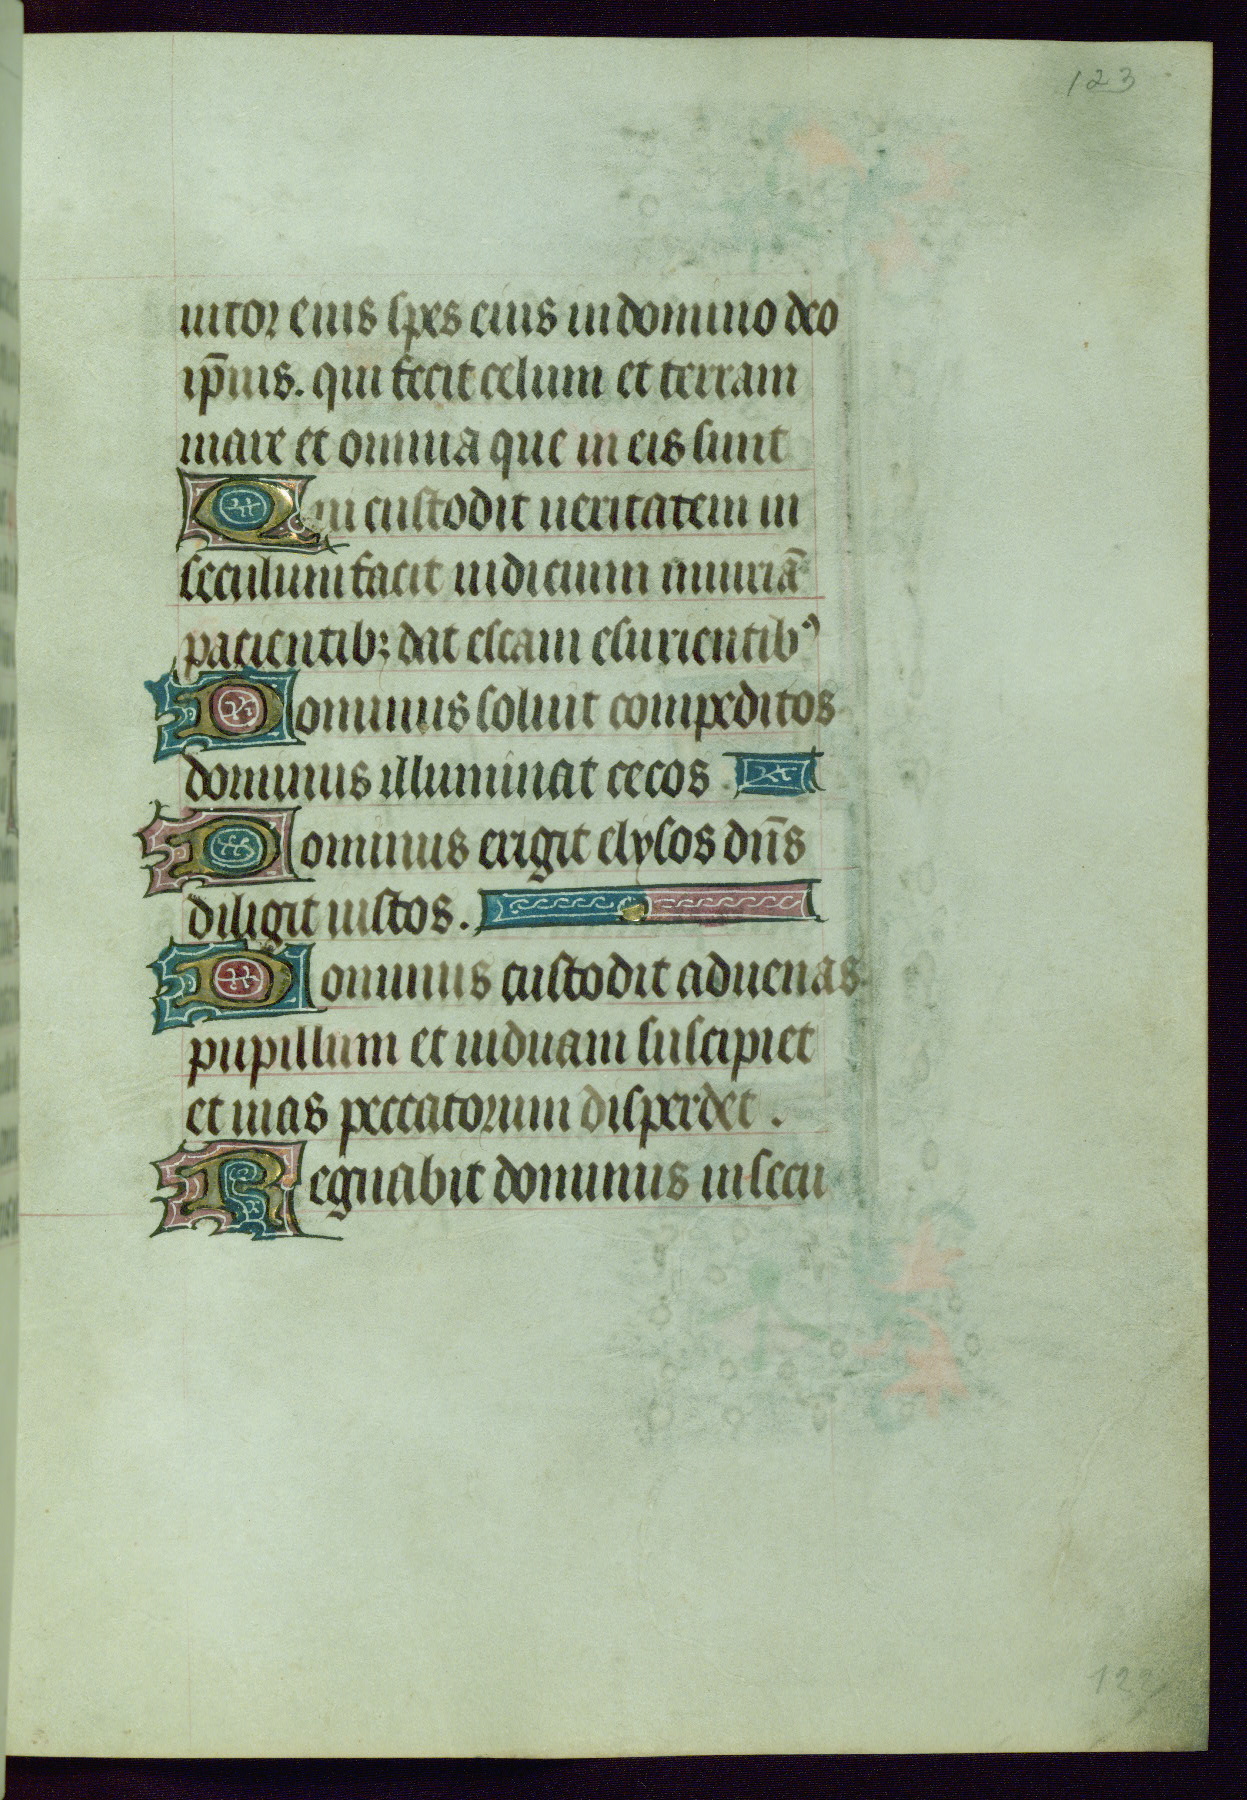 123
iutor eius spes eius in domino deo
ip̄ius. qui fecit celum et terram
mare et omnia que in eis sunt
Qui custodit ueritatem in
seculum facit iudicium iniuriā
pacientib; dat escam esurientibꝰ
Dominus soluit compeditos
dominus illuminat cecos
Dominus erigit elysos dn̄s
diligit iustos.
Dominus custodit aduenas
pupillum et uiduam suscipiet
et uias peccatorum disperdet.
Regnabit dominus in secu
122